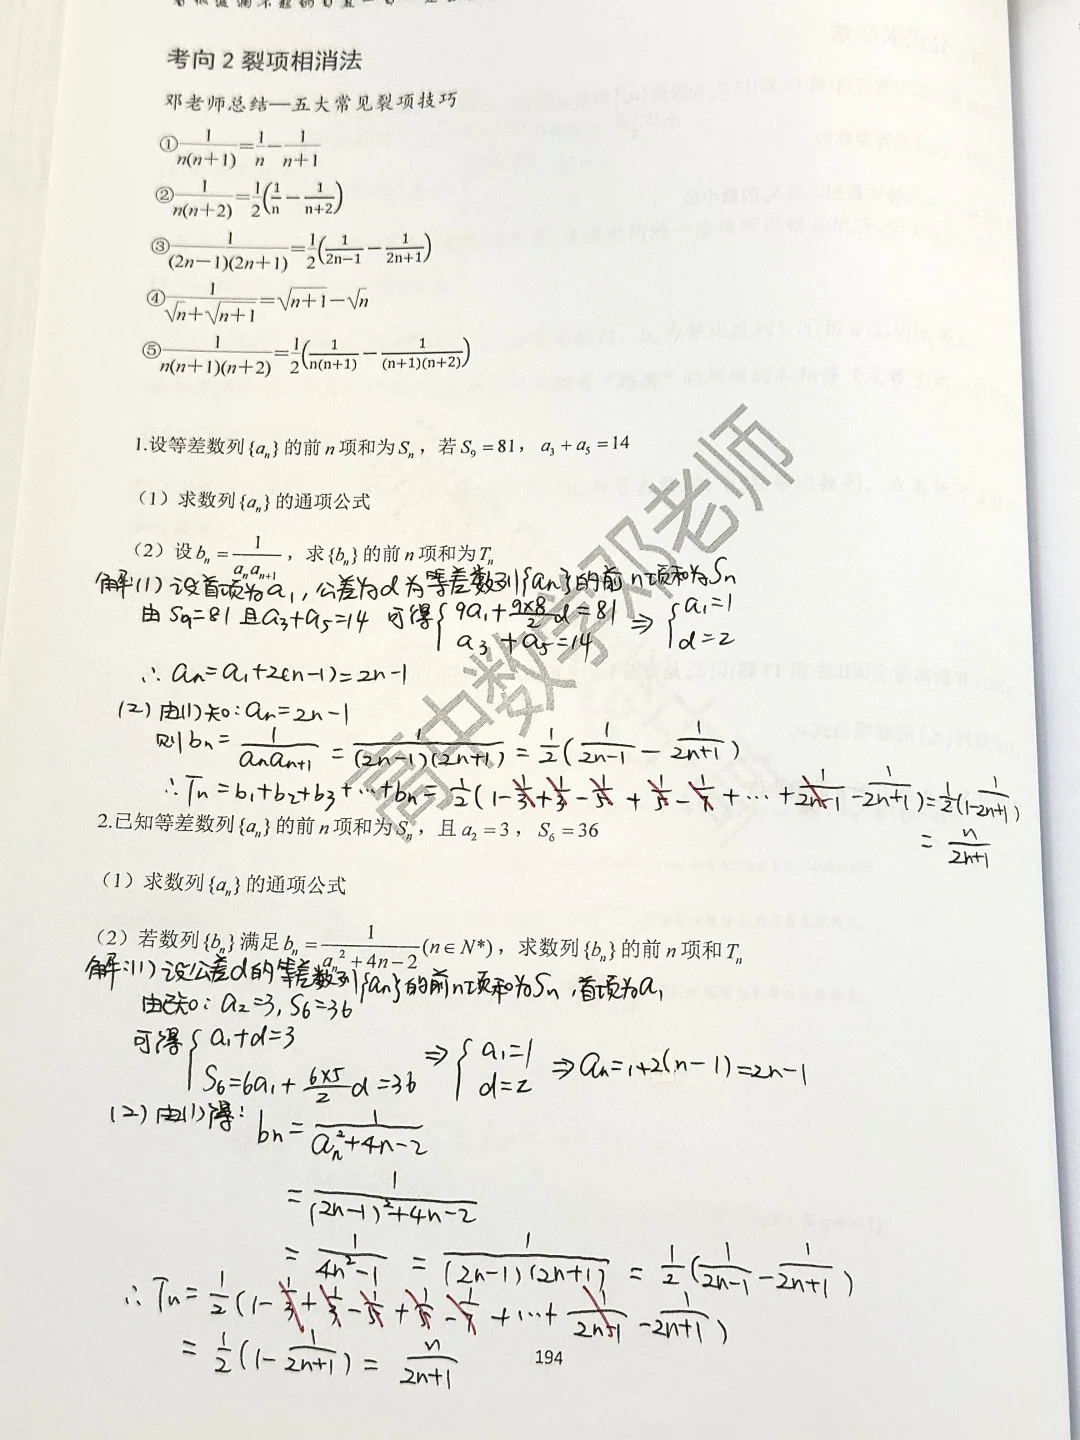 考向 2 裂项相消法
邓老师总结—五大常见裂项技巧
① 1/(n(n+1)) = 1/n − 1/(n+1)
② 1/(n(n+2)) = 1/2(1/n − 1/(n+2))
③ 1/((2n−1)(2n+1)) = 1/2(1/(2n−1) − 1/(2n+1))
④ 1/(√n+√(n+1)) = √(n+1) − √n
⑤ 1/(n(n+1)(n+2)) = 1/2(1/(n(n+1)) − 1/((n+1)(n+2)))
1.设等差数列{aₙ}的前 n 项和为 Sₙ，若 S₉=81，a₃+a₅=14
（1）求数列{aₙ}的通项公式
（2）设 bₙ = 1/(aₙaₙ₊₁)，求{bₙ}的前 n 项和为 Tₙ
解:(1)设首项为a₁,公差为d为等差数列{an}的前n项和为Sn
由S₉=81且a₃+a₅=14 可得{9a₁+(9×8/2)d=81 ⇒ {a₁=1
a₃+a₅=14 d=2
∴an=a₁+2(n-1)=2n-1
(2)由(1)知:an=2n-1
则bn=1/(an an+1)=1/((2n-1)(2n+1))=1/2(1/(2n-1)-1/(2n+1))
∴Tn=b₁+b₂+b₃+…+bn=1/2(1-1/3+1/3-1/5+1/5-1/7+…+1/(2n-1)-1/(2n+1))=1/2(1-1/(2n+1))
=n/(2n+1)
2.已知等差数列{aₙ}的前 n 项和为 Sₙ，且 a₂=3，S₆=36
（1）求数列{aₙ}的通项公式
（2）若数列{bₙ}满足 bₙ = 1/(aₙ²+4n−2) (n∈N*)，求数列{bₙ}的前 n 项和 Tₙ
解:(1)设公差d的等差数列{an}的前n项和为Sn,首项为a₁
由已知:a₂=3,S₆=36
可得{a₁+d=3 ⇒ {a₁=1 ⇒an=1+2(n-1)=2n-1
S₆=6a₁+(6×5/2)d=36 d=2
(2)由(1)得:bn=1/(an²+4n-2)
=1/((2n-1)²+4n-2)
=1/(4n²-1)=1/((2n-1)(2n+1))=1/2(1/(2n-1)-1/(2n+1))
∴Tn=1/2(1-1/3+1/3-1/5+1/5-1/7+…+1/(2n-1)-1/(2n+1))
=1/2(1-1/(2n+1))=n/(2n+1)
194
高中数学邓老师